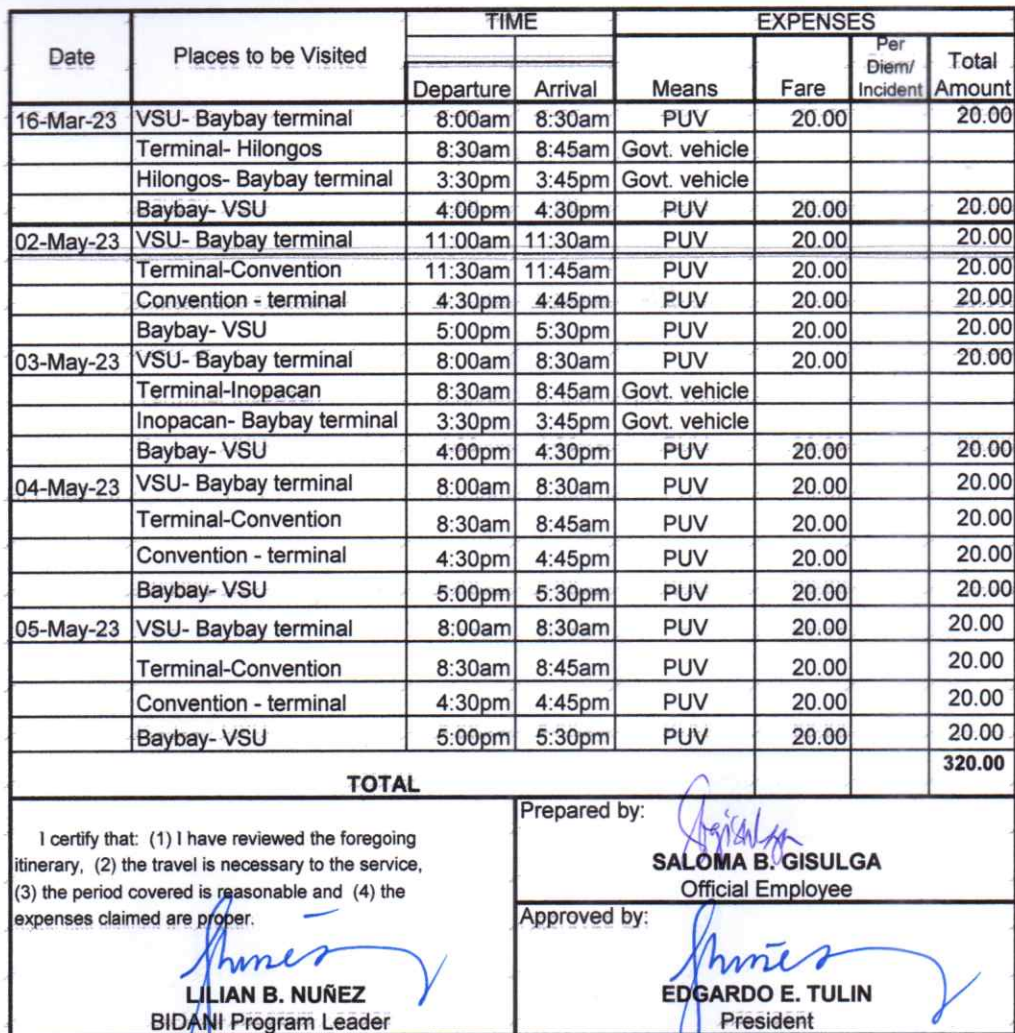 TIME EXPENSES
Date Places to be Visited Departure Arrival Means Fare Per Diem/ Incident Total Amount
16-Mar-23 VSU- Baybay terminal 8:00am 8:30am PUV 20.00 20.00
Terminal- Hilongos 8:30am 8:45am Govt. vehicle
Hilongos- Baybay terminal 3:30pm 3:45pm Govt. vehicle
Baybay- VSU 4:00pm 4:30pm PUV 20.00 20.00
02-May-23 VSU- Baybay terminal 11:00am 11:30am PUV 20.00 20.00
Terminal-Convention 11:30am 11:45am PUV 20.00 20.00
Convention - terminal 4:30pm 4:45pm PUV 20.00 20.00
Baybay- VSU 5:00pm 5:30pm PUV 20.00 20.00
03-May-23 VSU- Baybay terminal 8:00am 8:30am PUV 20.00 20.00
Terminal-Inopacan 8:30am 8:45am Govt. vehicle
Inopacan- Baybay terminal 3:30pm 3:45pm Govt. vehicle
Baybay- VSU 4:00pm 4:30pm PUV 20.00 20.00
04-May-23 VSU- Baybay terminal 8:00am 8:30am PUV 20.00 20.00
Terminal-Convention 8:30am 8:45am PUV 20.00 20.00
Convention - terminal 4:30pm 4:45pm PUV 20.00 20.00
Baybay- VSU 5:00pm 5:30pm PUV 20.00 20.00
05-May-23 VSU- Baybay terminal 8:00am 8:30am PUV 20.00 20.00
Terminal-Convention 8:30am 8:45am PUV 20.00 20.00
Convention - terminal 4:30pm 4:45pm PUV 20.00 20.00
Baybay- VSU 5:00pm 5:30pm PUV 20.00 20.00
TOTAL 320.00
I certify that: (1) I have reviewed the foregoing
itinerary, (2) the travel is necessary to the service,
(3) the period covered is reasonable and (4) the
expenses claimed are proper.
LILIAN B. NUÑEZ
BIDANI Program Leader
Prepared by:
SALOMA B. GISULGA
Official Employee
Approved by:
EDGARDO E. TULIN
President